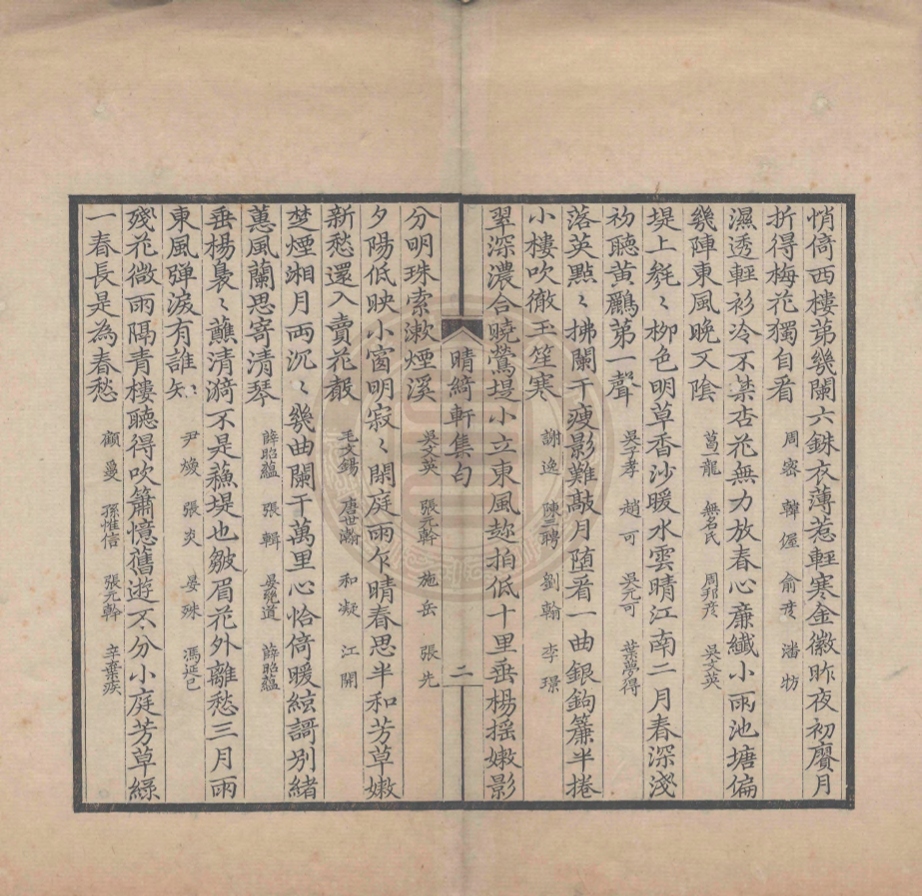 悄倚西樓第幾闌六銖衣薄惹輕寒金徽昨夜初賡月
折得梅花獨自看 周密 韓偓 俞彥 潘牥
濕透輕衫冷不禁杏花無力放春心廉纖小雨池塘偏
幾陣東風晚又陰 葛一龍 無名氏 周邦彥 吳文英
堤上毵〻柳色明草香沙暖水雲晴江南二月春深淺
初聽黃鸝第一聲 吳子孝 趙可 吳元可 葉夢得
落英點〻拂闌干瘦影難敲月堕看一曲銀鉤簾半捲
小樓吹徹玉笙寒 謝逸 陳三聘 劉翰 李璟
翠深濃合曉鶯堤小立東風趂拍低十里垂楊搖嫩影
晴綺軒集句
二
分明珠索漱煙溪 吳文英 張元幹 施岳 張先
夕陽低映小窗明寂〻閑庭雨乍晴春思半和芳草嫩
新愁還入賣花聲 毛文錫 唐世濟 和凝 江開
楚煙湘月兩沉〻幾曲闌干萬里心恰倚暖絃謌別緒
蕙風蘭思寄清琴 薛昭蘊 張輯 晏幾道 薛昭蘊
垂楊裊〻蘸清漪不是蘓堤也皺眉花外離愁三月雨
東風彈淚有誰知 尹煥 張炎 晏殊 馮延巳
殘花微雨隔青樓聽得吹簫憶舊遊不分小庭芳草綠
一春長是為春愁 顧敻 孫惟信 張元幹 辛棄疾